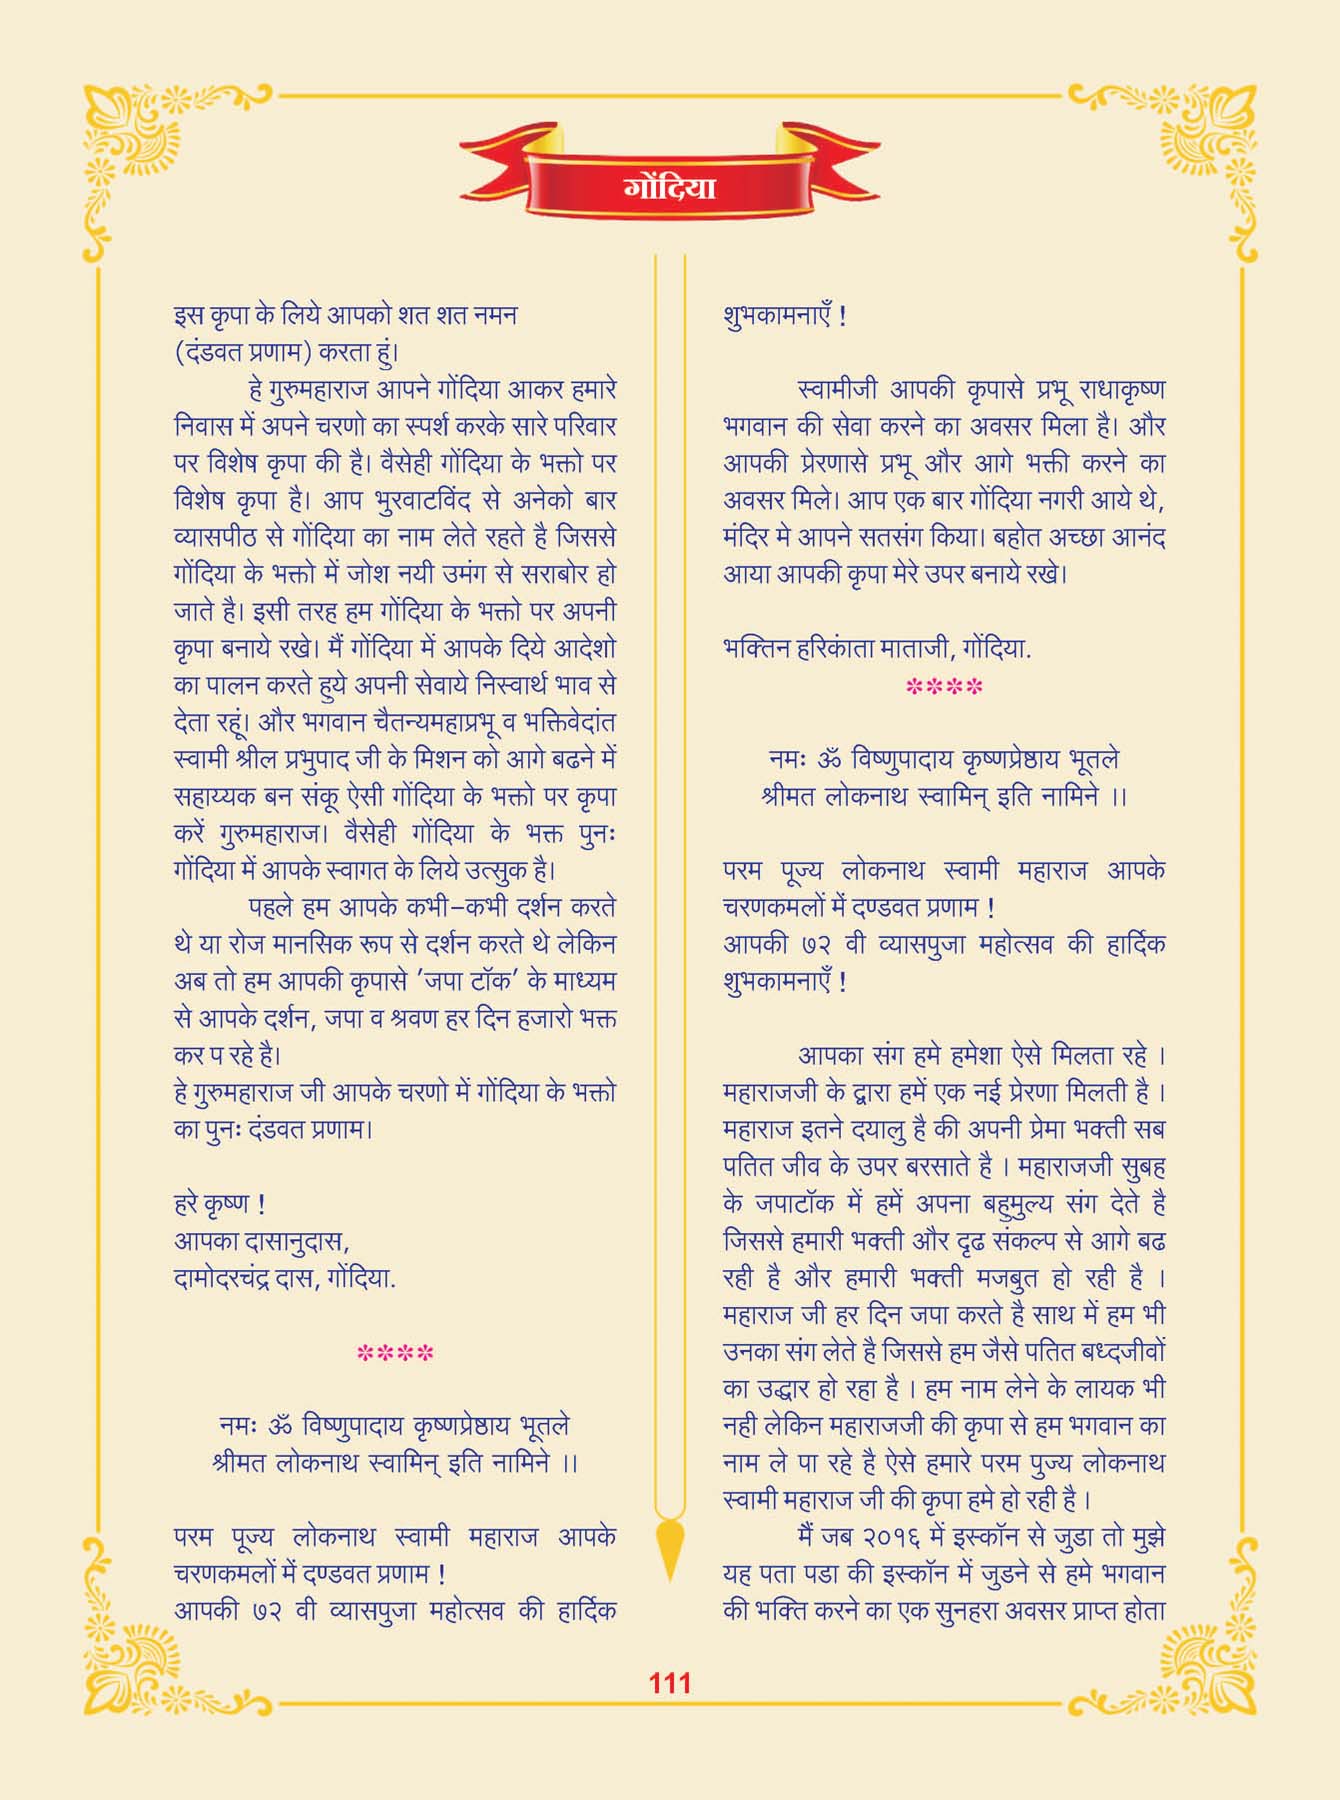 गोंदिया
इस कृपा के लिये आपको शत शत नमन
(दंडवत प्रणाम) करता हुं।
हे गुरुमहाराज आपने गोंदिया आकर हमारे
निवास में अपने चरणो का स्पर्श करके सारे परिवार
पर विशेष कृपा की है। वैसेही गोंदिया के भक्तो पर
विशेष कृपा है। आप भुरवाटविंद से अनेको बार
व्यासपीठ से गोंदिया का नाम लेते रहते है जिससे
गोंदिया के भक्तो में जोश नयी उमंग से सराबोर हो
जाते है। इसी तरह हम गोंदिया के भक्तो पर अपनी
कृपा बनाये रखे। मैं गोंदिया में आपके दिये आदेशो
का पालन करते हुये अपनी सेवाये निस्वार्थ भाव से
देता रहूं। और भगवान चैतन्यमहाप्रभू व भक्तिवेदांत
स्वामी श्रील प्रभुपाद जी के मिशन को आगे बढने में
सहाय्यक बन संकू ऐसी गोंदिया के भक्तो पर कृपा
करें गुरुमहाराज। वैसेही गोंदिया के भक्त पुनः
गोंदिया में आपके स्वागत के लिये उत्सुक है।
पहले हम आपके कभी-कभी दर्शन करते
थे या रोज मानसिक रूप से दर्शन करते थे लेकिन
अब तो हम आपकी कृपासे ’जपा टॉक’ के माध्यम
से आपके दर्शन, जपा व श्रवण हर दिन हजारो भक्त
कर प रहे है।
हे गुरुमहाराज जी आपके चरणो में गोंदिया के भक्तो
का पुनः दंडवत प्रणाम।
हरे कृष्ण !
आपका दासानुदास,
दामोदरचंद्र दास, गोंदिया.
****
नमः ॐ विष्णुपादाय कृष्णप्रेष्ठाय भूतले
श्रीमत लोकनाथ स्वामिन् इति नामिने ।।
परम पूज्य लोकनाथ स्वामी महाराज आपके
चरणकमलों में दण्डवत प्रणाम !
आपकी ७२ वी व्यासपुजा महोत्सव की हार्दिक
शुभकामनाएँ !
स्वामीजी आपकी कृपासे प्रभू राधाकृष्ण
भगवान की सेवा करने का अवसर मिला है। और
आपकी प्रेरणासे प्रभू और आगे भक्ती करने का
अवसर मिले। आप एक बार गोंदिया नगरी आये थे,
मंदिर मे आपने सतसंग किया। बहोत अच्छा आनंद
आया आपकी कृपा मेरे उपर बनाये रखे।
भक्तिन हरिकांता माताजी, गोंदिया.
****
नमः ॐ विष्णुपादाय कृष्णप्रेष्ठाय भूतले
श्रीमत लोकनाथ स्वामिन् इति नामिने ।।
परम पूज्य लोकनाथ स्वामी महाराज आपके
चरणकमलों में दण्डवत प्रणाम !
आपकी ७२ वी व्यासपुजा महोत्सव की हार्दिक
शुभकामनाएँ !
आपका संग हमे हमेशा ऐसे मिलता रहे ।
महाराजजी के द्वारा हमें एक नई प्रेरणा मिलती है ।
महाराज इतने दयालु है की अपनी प्रेमा भक्ती सब
पतित जीव के उपर बरसाते है । महाराजजी सुबह
के जपाटॉक में हमें अपना बहुमुल्य संग देते है
जिससे हमारी भक्ती और दृढ संकल्प से आगे बढ
रही है और हमारी भक्ती मजबुत हो रही है ।
महाराज जी हर दिन जपा करते है साथ में हम भी
उनका संग लेते है जिससे हम जैसे पतित बध्दजीवों
का उद्धार हो रहा है । हम नाम लेने के लायक भी
नही लेकिन महाराजजी की कृपा से हम भगवान का
नाम ले पा रहे है ऐसे हमारे परम पुज्य लोकनाथ
स्वामी महाराज जी की कृपा हमे हो रही है ।
मैं जब २०१६ में इस्कॉन से जुडा तो मुझे
यह पता पडा की इस्कॉन में जुडने से हमे भगवान
की भक्ति करने का एक सुनहरा अवसर प्राप्त होता
111